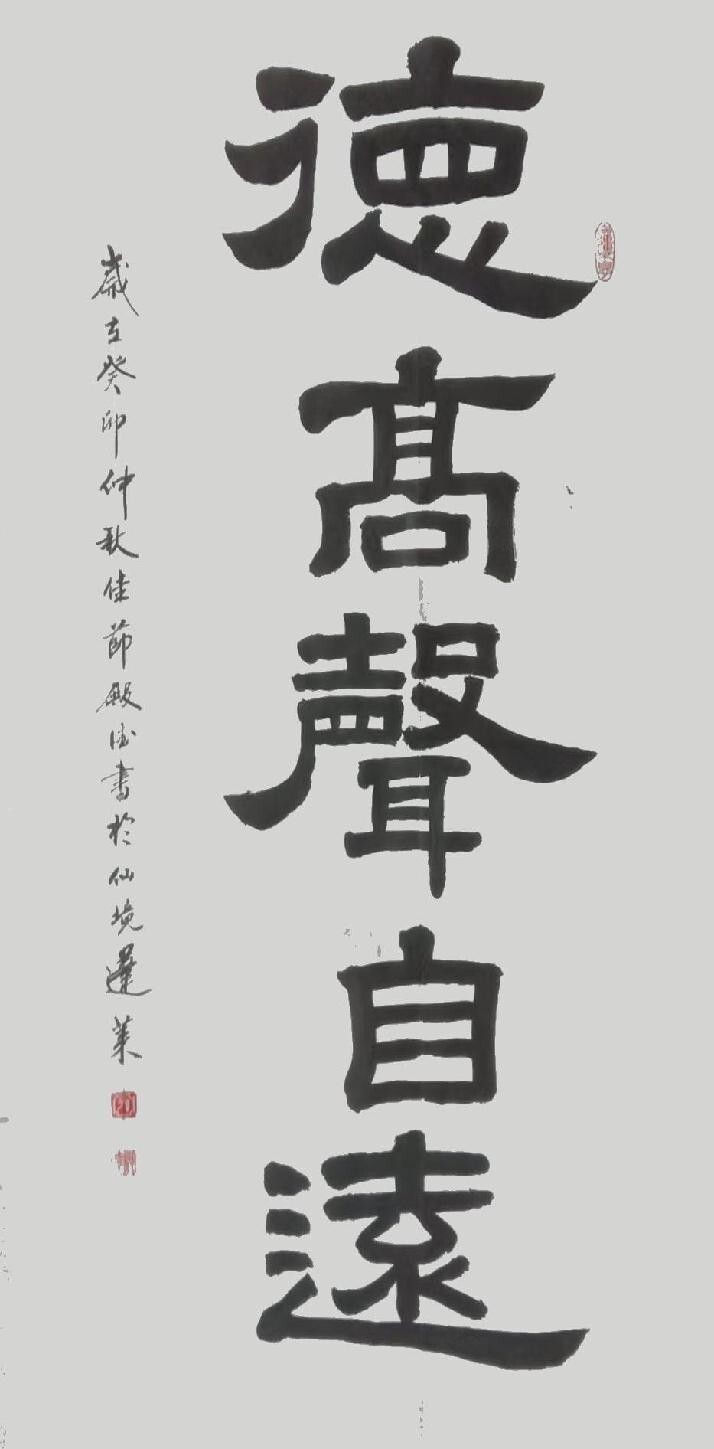 德高聲自遠
歲在癸卯仲秋佳節殿 書於仙境蓬萊